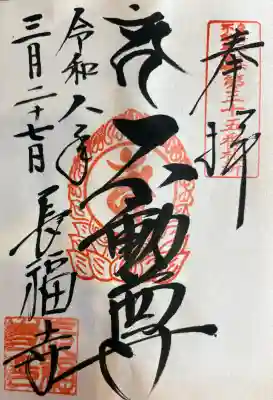 奉拝
不動尊
令和八年
三月二十七日
長福寺